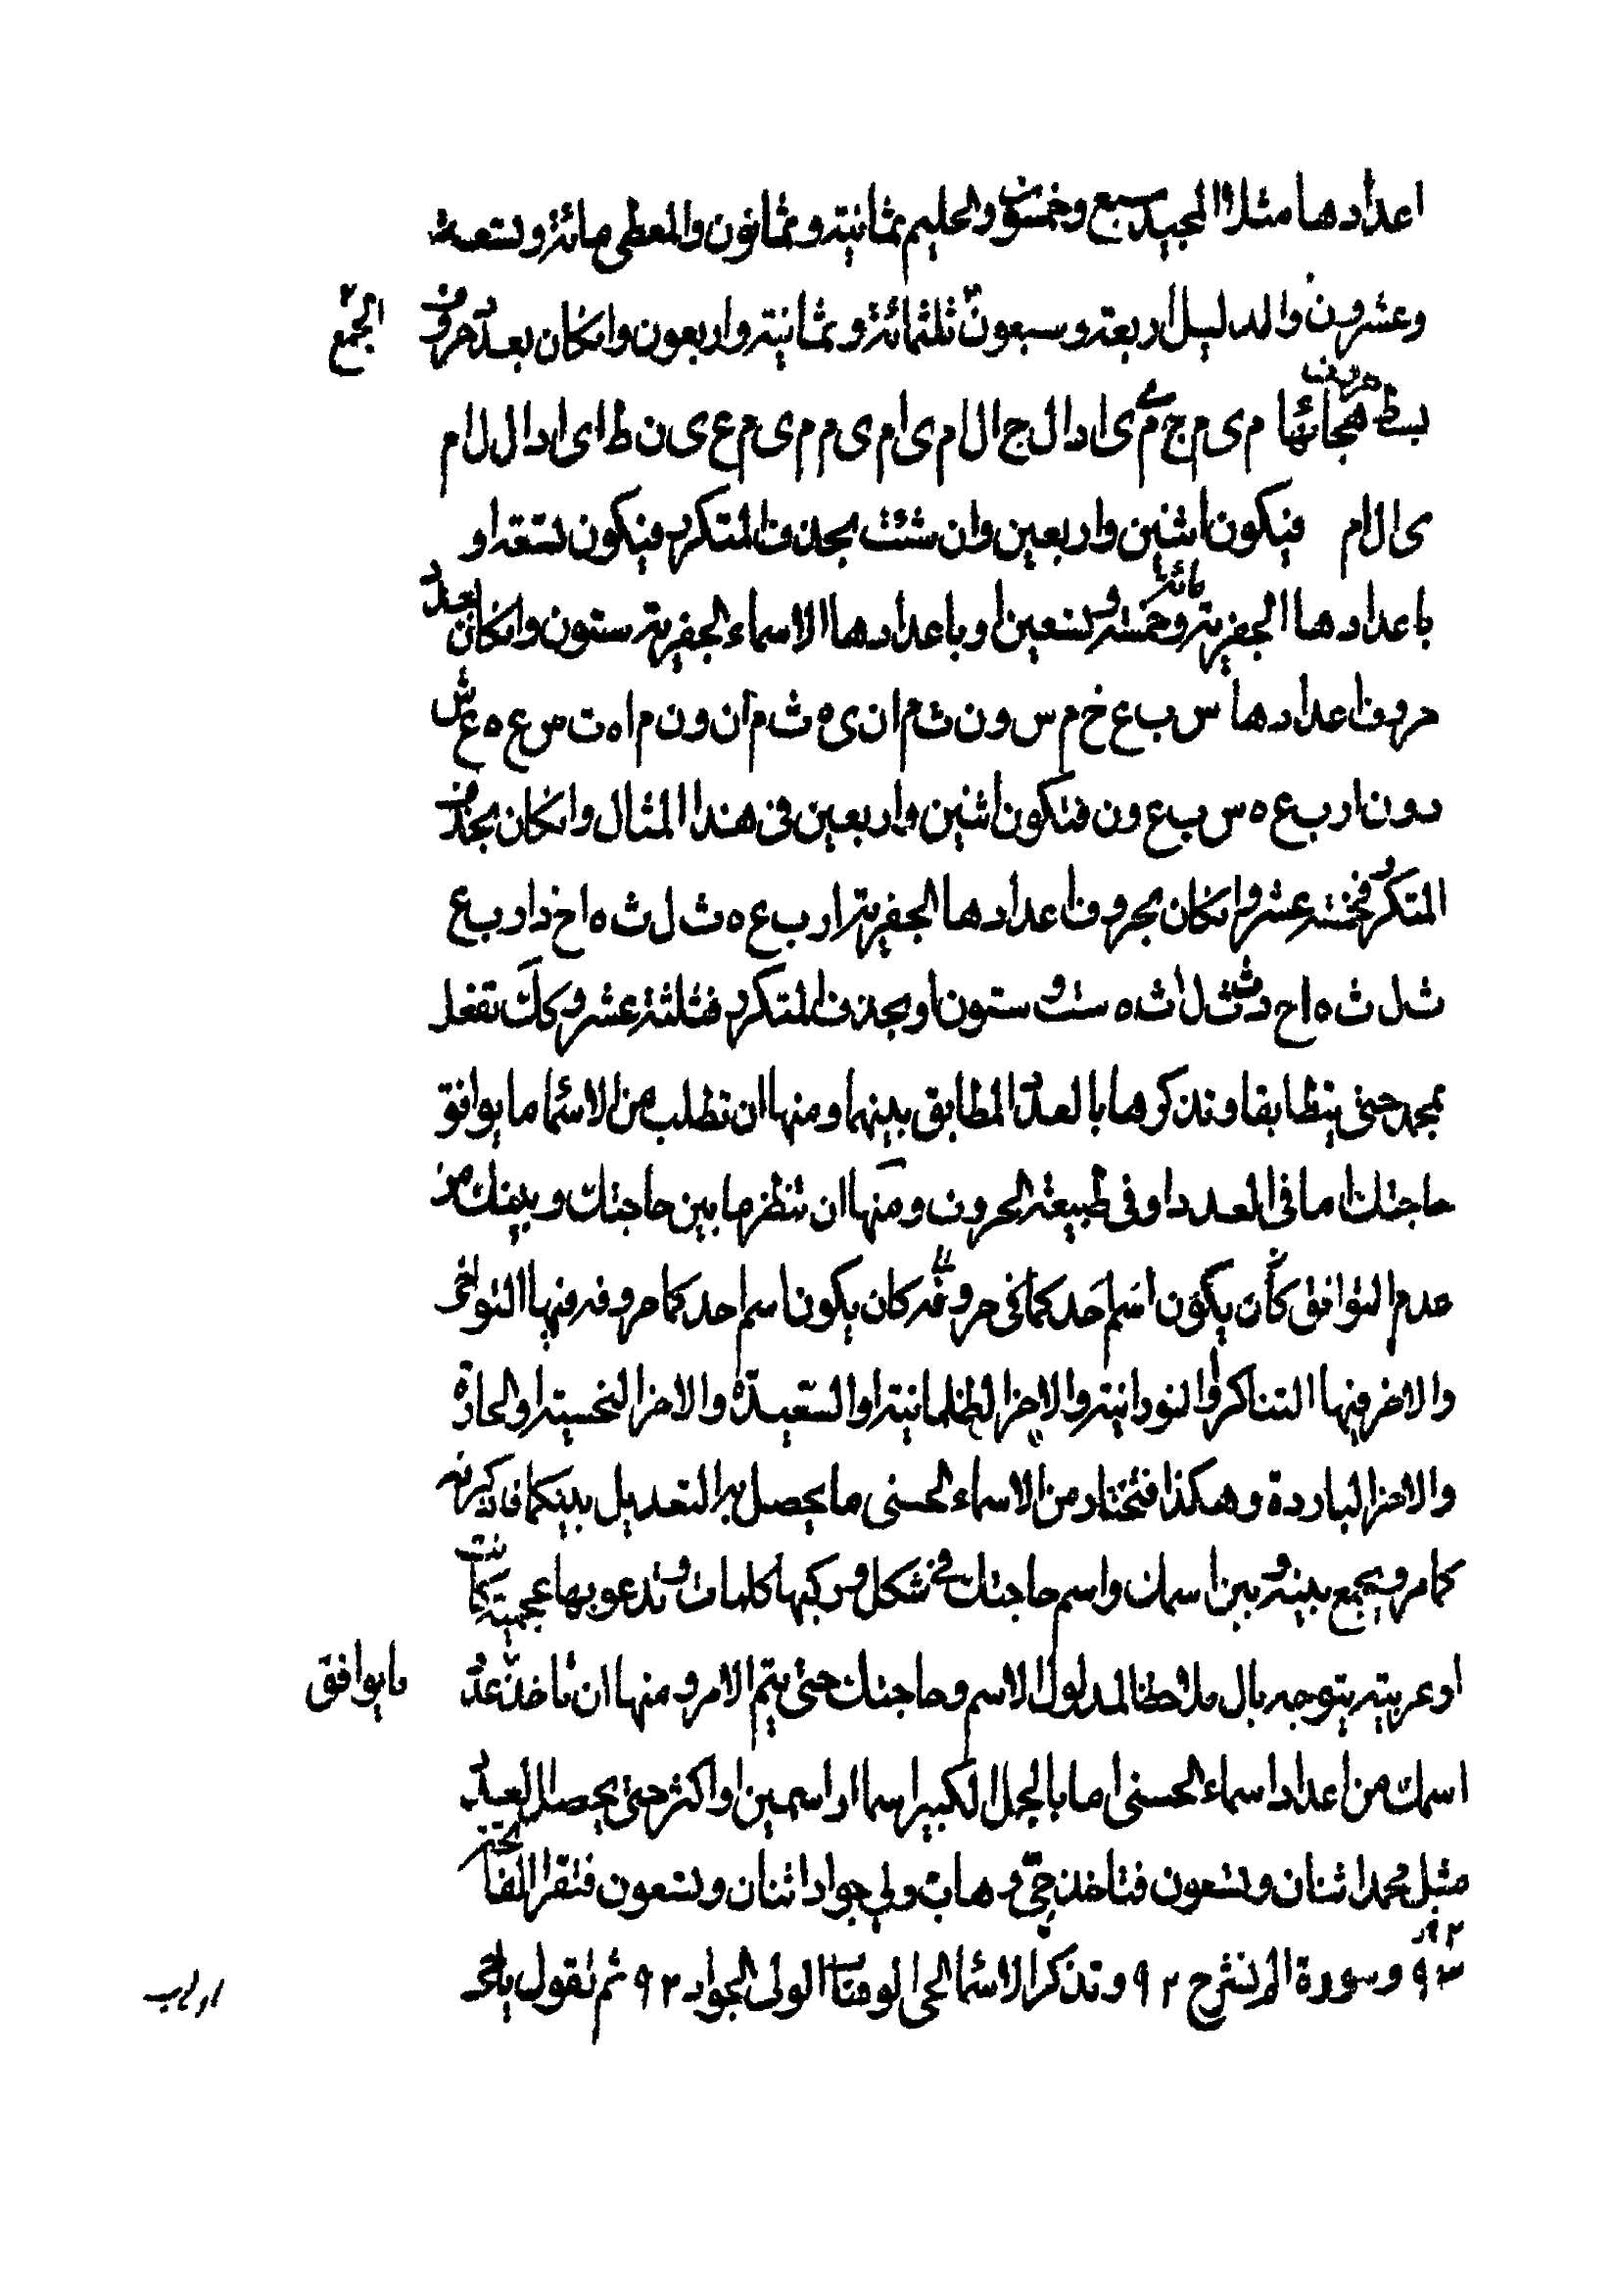 اعدادها مثلا المجيد سبع وخمسون والحليم ثمانية وثمانون والمعطى مائة وتسعة
وعشرون والدليل اربعة وسبعون ثلثمائة وثمانية واربعون وانكان بعدد حروف الجمع
بسط حروف هجائها م ى م ج ى م ى ا د ال ج ال ام ى ام ى م م ى م ع ى ن ط اى ا د ال ل ام
ى ال ام فيكون اثنين واربعين وان شئت بحذف المتكرر فيكون تسعة او
باعدادها الجفرية مائة وخمسة وتسعين او باعدادها الاسماء الجفرية ستون وانكان بعدد
حروف اعدادها س ب ع خ م س و ن ث م ان ى ه ث م ان و ن م ا ه ت س ع ه ع ش
ر و ن ا ر ب ع ه س ب ع و ن فتكون اثنين واربعين فى هذا المثال وانكان بحذف
المتكرر فخمسة عشر وانكان بحروف اعدادها الجفرية ا ر ب ع ه ث ل ث ه ا ح د ا ر ب ع
ث ل ث ه ا ح د ث ث ل اث ه ست و ستون او بحذف المتكرر فثلثة عشر وكك تفعل
بمحمد حتى يتطابقا وتذكرها بالعدد المطابق بينهما ومنها ان تطلب من الاسماء ما يوافق
حاجتك اما فى العدد او فى طبيعة الحروف ومنها ان تنظر ما بين حاجتك وبينك من
عدم التوافق كأن يكون اسم احدكما فى حروفه كان يكون اسم احدكما حروفه فيها التواخى
والاخر فيها التناكر او النورانية والاخر الظلمانية او السعيدة والاخر النحسية او الحارة
والاخر الباردة وهكذا فتختار من الاسماء الحسنى ما يحصل به التعديل بينكما فان
كما مر ويجمع بينه وبين اسمك واسم حاجتك فى شكل وتركبها كلمات وتدعو بها عجمية كانت
او عربية بتوجه بال ملاحظا لمدلول الاسم وحاجتك حتى يتم الامر ومنها ان تاخذ عدد ما يوافق
اسمك من اعداد اسماء الحسنى اما بالجمل الكبير اسما او اسمين او اكثر حتى يحصل العدد
مثل محمد اثنان وتسعون فتاخذ حى وهاب ولى جواد اثنان وتسعون فتقرا الفاتحة
٩٢ وسورة الم نشرح ٩٢ وتذكر الاسماء الحى الوهاب الولى الجواد ٩٢ ثم تقول